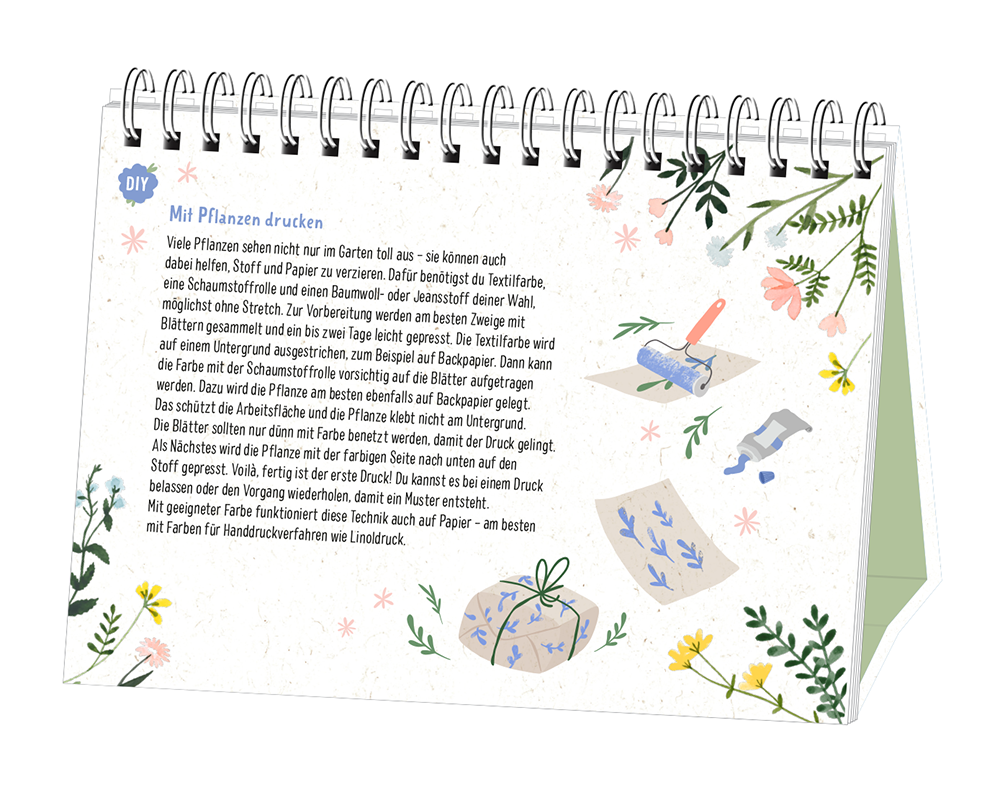 DIY
Mit Pflanzen drucken
Viele Pflanzen sehen nicht nur im Garten toll aus – sie können auch
dabei helfen, Stoff und Papier zu verzieren. Dafür benötigst du Textilfarbe,
eine Schaumstoffrolle und einen Baumwoll- oder Jeansstoff deiner Wahl,
möglichst ohne Stretch. Zur Vorbereitung werden am besten Zweige mit
Blättern gesammelt und ein bis zwei Tage leicht gepresst. Die Textilfarbe wird
auf einem Untergrund ausgestrichen, zum Beispiel auf Backpapier. Dann kann
die Farbe mit der Schaumstoffrolle vorsichtig auf die Blätter aufgetragen
werden. Dazu wird die Pflanze am besten ebenfalls auf Backpapier gelegt.
Das schützt die Arbeitsfläche und die Pflanze klebt nicht am Untergrund.
Die Blätter sollten nur dünn mit Farbe benetzt werden, damit der Druck gelingt.
Als Nächstes wird die Pflanze mit der farbigen Seite nach unten auf den
Stoff gepresst. Voilà, fertig ist der erste Druck! Du kannst es bei einem Druck
belassen oder den Vorgang wiederholen, damit ein Muster entsteht.
Mit geeigneter Farbe funktioniert diese Technik auch auf Papier – am besten
mit Farben für Handdruckverfahren wie Linoldruck.